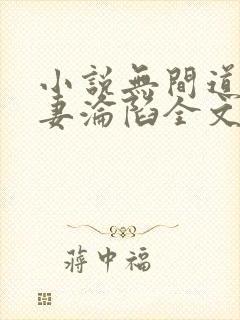 小説無間道
妻淪陷全文
蔣中福